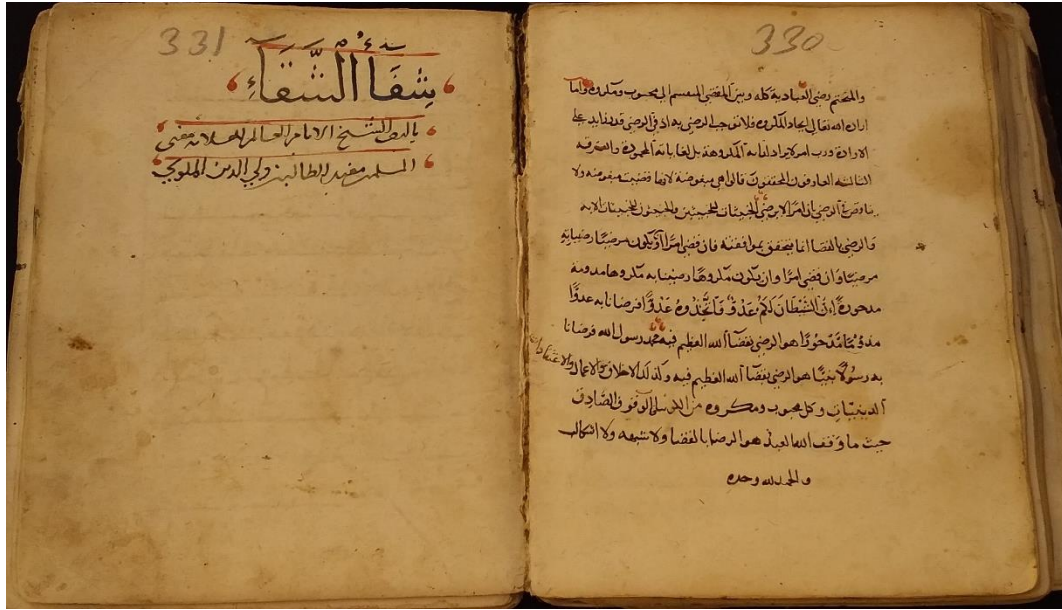 330
والمحتم رضى العباد به كله وبين المقضي المنقسم الى محبوب ومكروه واما
ارادة الله تعالى ايجاد المكروه فلا توجب الرضى به اذ في الرضى قدر زايد على
الارادة ورب امر لا يراد لذاته المكروهة بل لغاياته المحمودة والفرقة
الثالثة العارفون المحققون قالوا هي مبغوضة لانها قضيت مبغوضة ولا
الرضي ان امرا لا يرضى الخبيثات للخبيثين والخبيثون للخبيثات الاية
والرضى بالقضا انما يتحقق بموافقته فان قضى امرا ان يكون مرضيا رضينا به
مرضيا وان قضى امرا وان يكون مكروها رضينا به مكروها
مدحورا ان الشيطان لكم عدو فاتخذوه عدوا فرضانا به عدوا
مدحورا هو الرضى بقضاء الله العظيم فيه محمد رسول الله فرضانا
به رسولا نبيا هو الرضى بقضاء الله العظيم فيه وكذلك الاخلاق والاعمال والاعتقادات
الدينيات وكل محبوب ومكروه من الله الوقوف الصادق
حيث ما وقف الله العبد هو الرضا بالقضا ولا شبهة ولا اشكال
والحمد لله وحده
331
شفاء الشقاء
تاليف الشيخ الامام العالم العلامة مفتي
المسلمين مفيد الطالبين ولي الدين الملوي